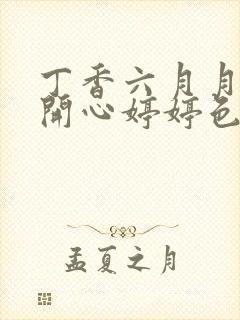 丁香六月月
開心婷婷色
孟夏之月